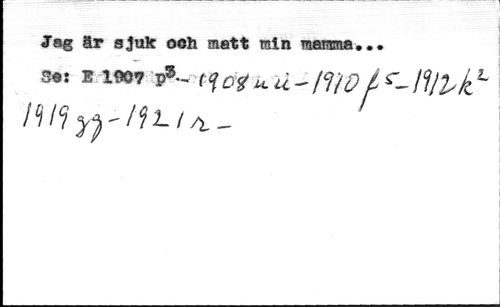 Jag är sjuk och matt min mamma...
Se: E 1907 p³ - 1908 u ü - 1910 f 5 - 1912 k²
1919 gg - 1921 r -